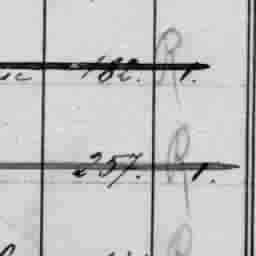 182. R 1.
257. R 1.